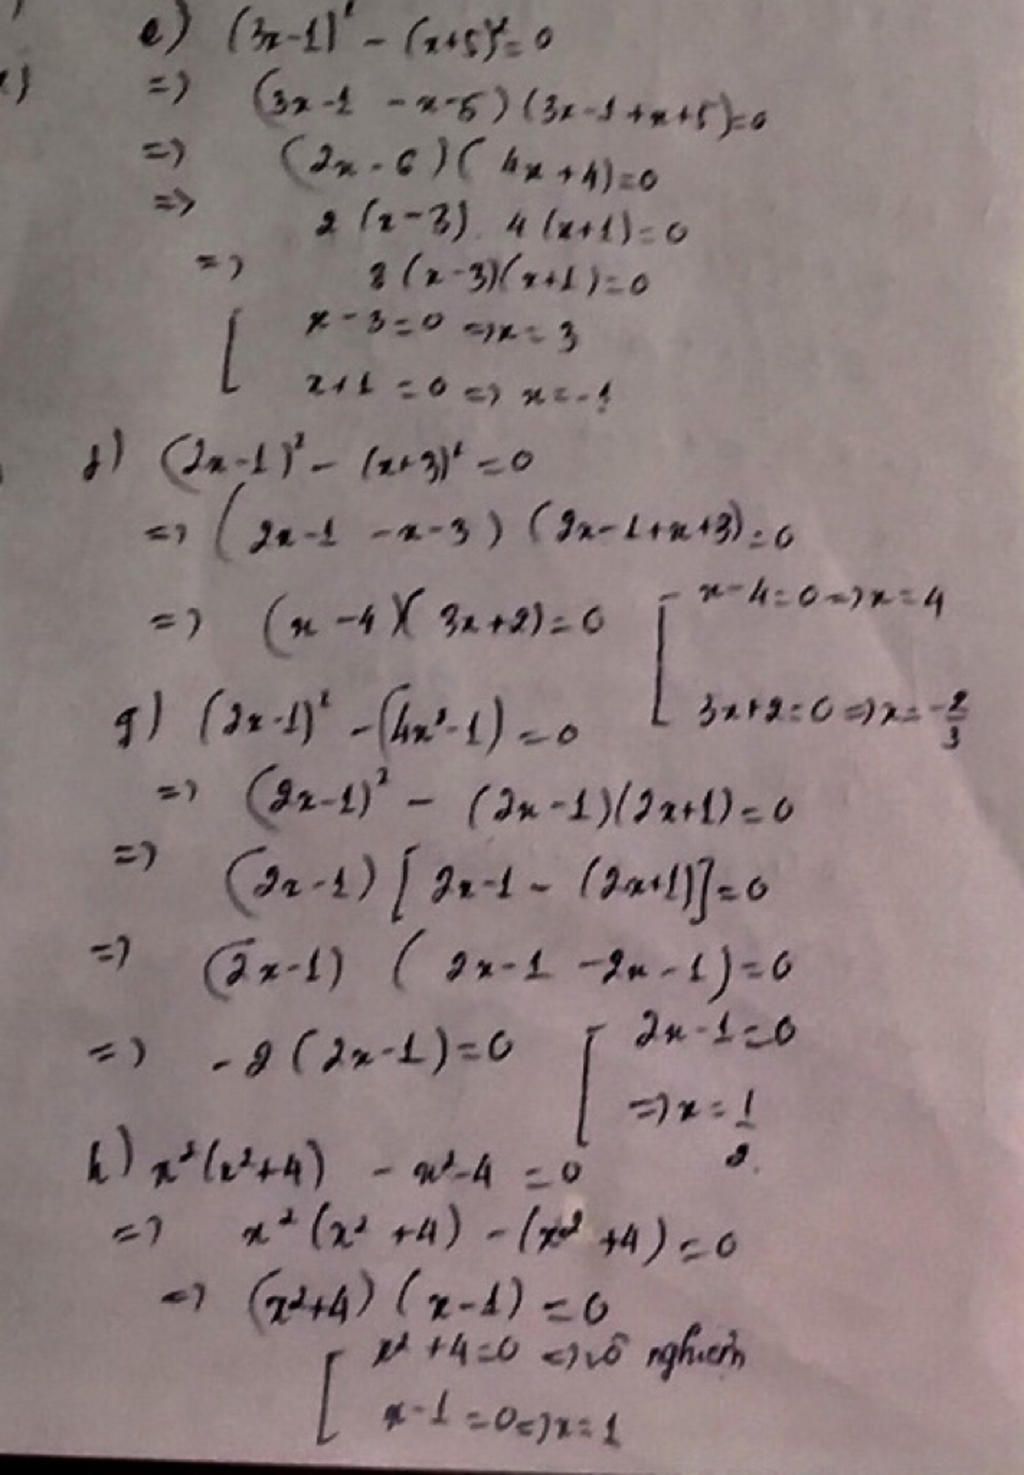 e) (3x-1)² - (x+5)² = 0
=> (3x-1 -x-5)(3x-1+x+5)=0
=> (2x-6)(4x+4)=0
=> 2(x-3). 4(x+1)=0
=> 8(x-3)(x+1)=0
[ x-3=0 => x=3
x+1=0 => x=-1
f) (2x-1)² - (x+3)² = 0
=> (2x-1 -x-3) (2x-1+x+3)=0
=> (x-4)(3x+2)=0 [ x-4=0 => x=4
3x+2=0 => x=-2/3
g) (2x-1)² - (4x²-1) = 0
=> (2x-1)² - (2x-1)(2x+1)=0
=> (2x-1) [2x-1 - (2x+1)]=0
=> (2x-1) (2x-1 -2x-1)=0
=> -2(2x-1)=0 [ 2x-1=0
=> x=1/2.
h) x²(x²+4) - x²-4 = 0
=> x²(x²+4) - (x²+4) = 0
=> (x²+4)(x-1) = 0
[ x²+4=0 => vô nghiệm
x-1=0 => x=1